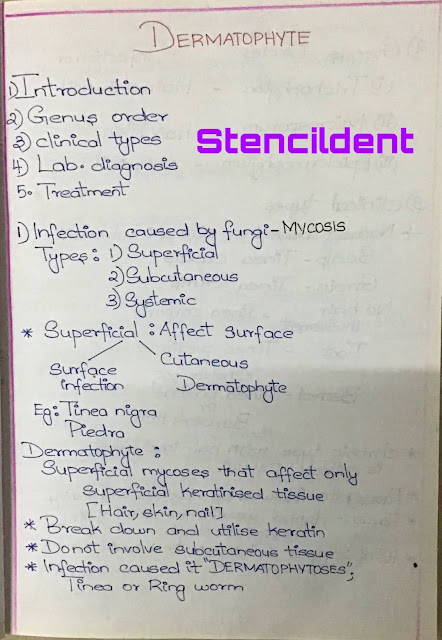 DERMATOPHYTE
1) Introduction
2) Genus order
3) clinical types
Stencildent
4) Lab. diagnosis
5. Treatment
1) Infection caused by fungi - MYCOSIS
Types: 1) Superficial
2) Subcutaneous
3) Systemic
* Superficial : Affect surface
Surface infection
Cutaneous
Dermatophyte
Eg: Tinea nigra
Piedra
Dermatophyte :
Superficial mycoses that affect only
superficial keratinised tissue
[Hair, skin, nail]
* Break down and utilise keratin
* Do not involve subcutaneous tissue
* Infection caused it "DERMATOPHYTOSES",
Tinea or Ring worm